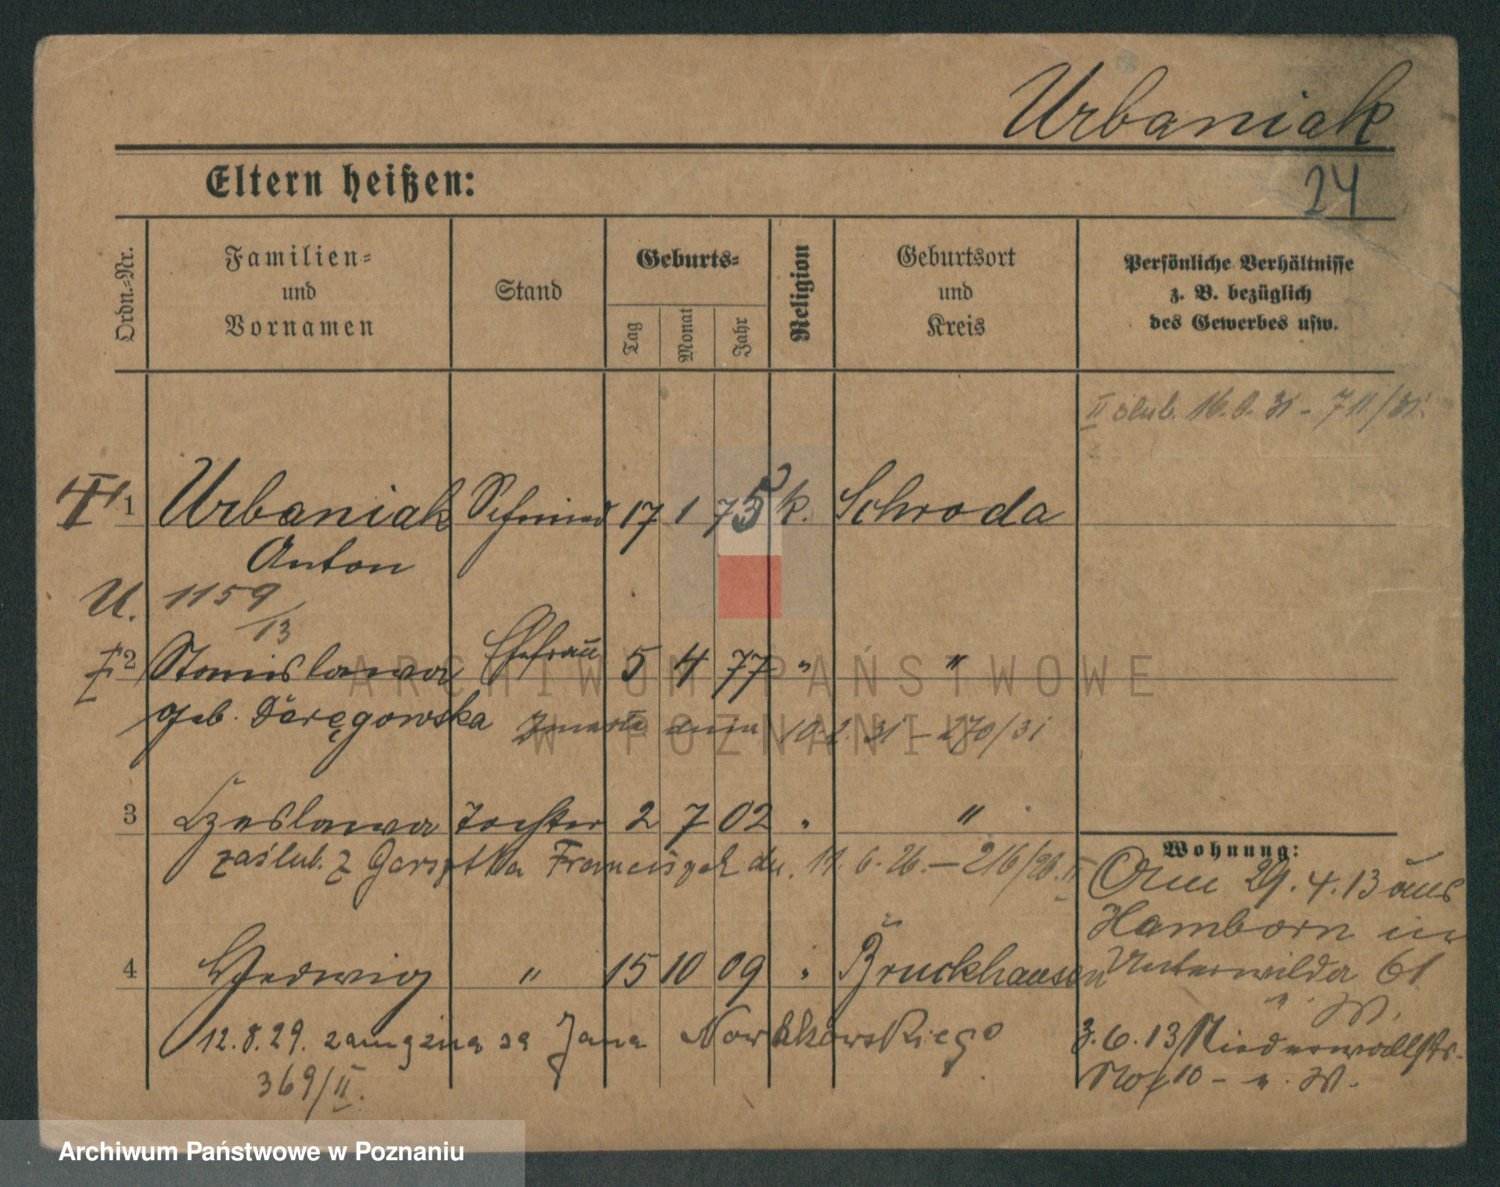 Urbaniak
24
Eltern heißen:
Ordn.-Nr.
Familien- und Vornamen
Stand
Geburts-
Tag
Monat
Jahr
Religion
Geburtsort und Kreis
Persönliche Verhältnisse z. B. bezüglich des Gewerbes usw.
II ślub. 16. 31 - 711/31
1 Urbaniak 17 1 75 k. Schroda
Anton
U. 1159/13
2 Stanislawa Ehefrau 5 4 77 " "
geb.
Zmarła dnia 10. 31 - 270/31
3 Czeslawa Tochter 2 7 02 " "
zaślub. z Franciszek dn. 11. 6. 26. - 216/26 II
Wohnung:
29. 4. 13 aus
Hamborn in
4 Hedwig " 15 10 09 " Bruckhausen
Unterwilda 61
" W.
12. 8. 29. zamężna za Jana Nowakowskiego
3. 6. 13 Niederwallstr.
369/II.
No 10 - W.
ARCHIWUM PAŃSTWOWE
W POZNANIU
Archiwum Państwowe w Poznaniu